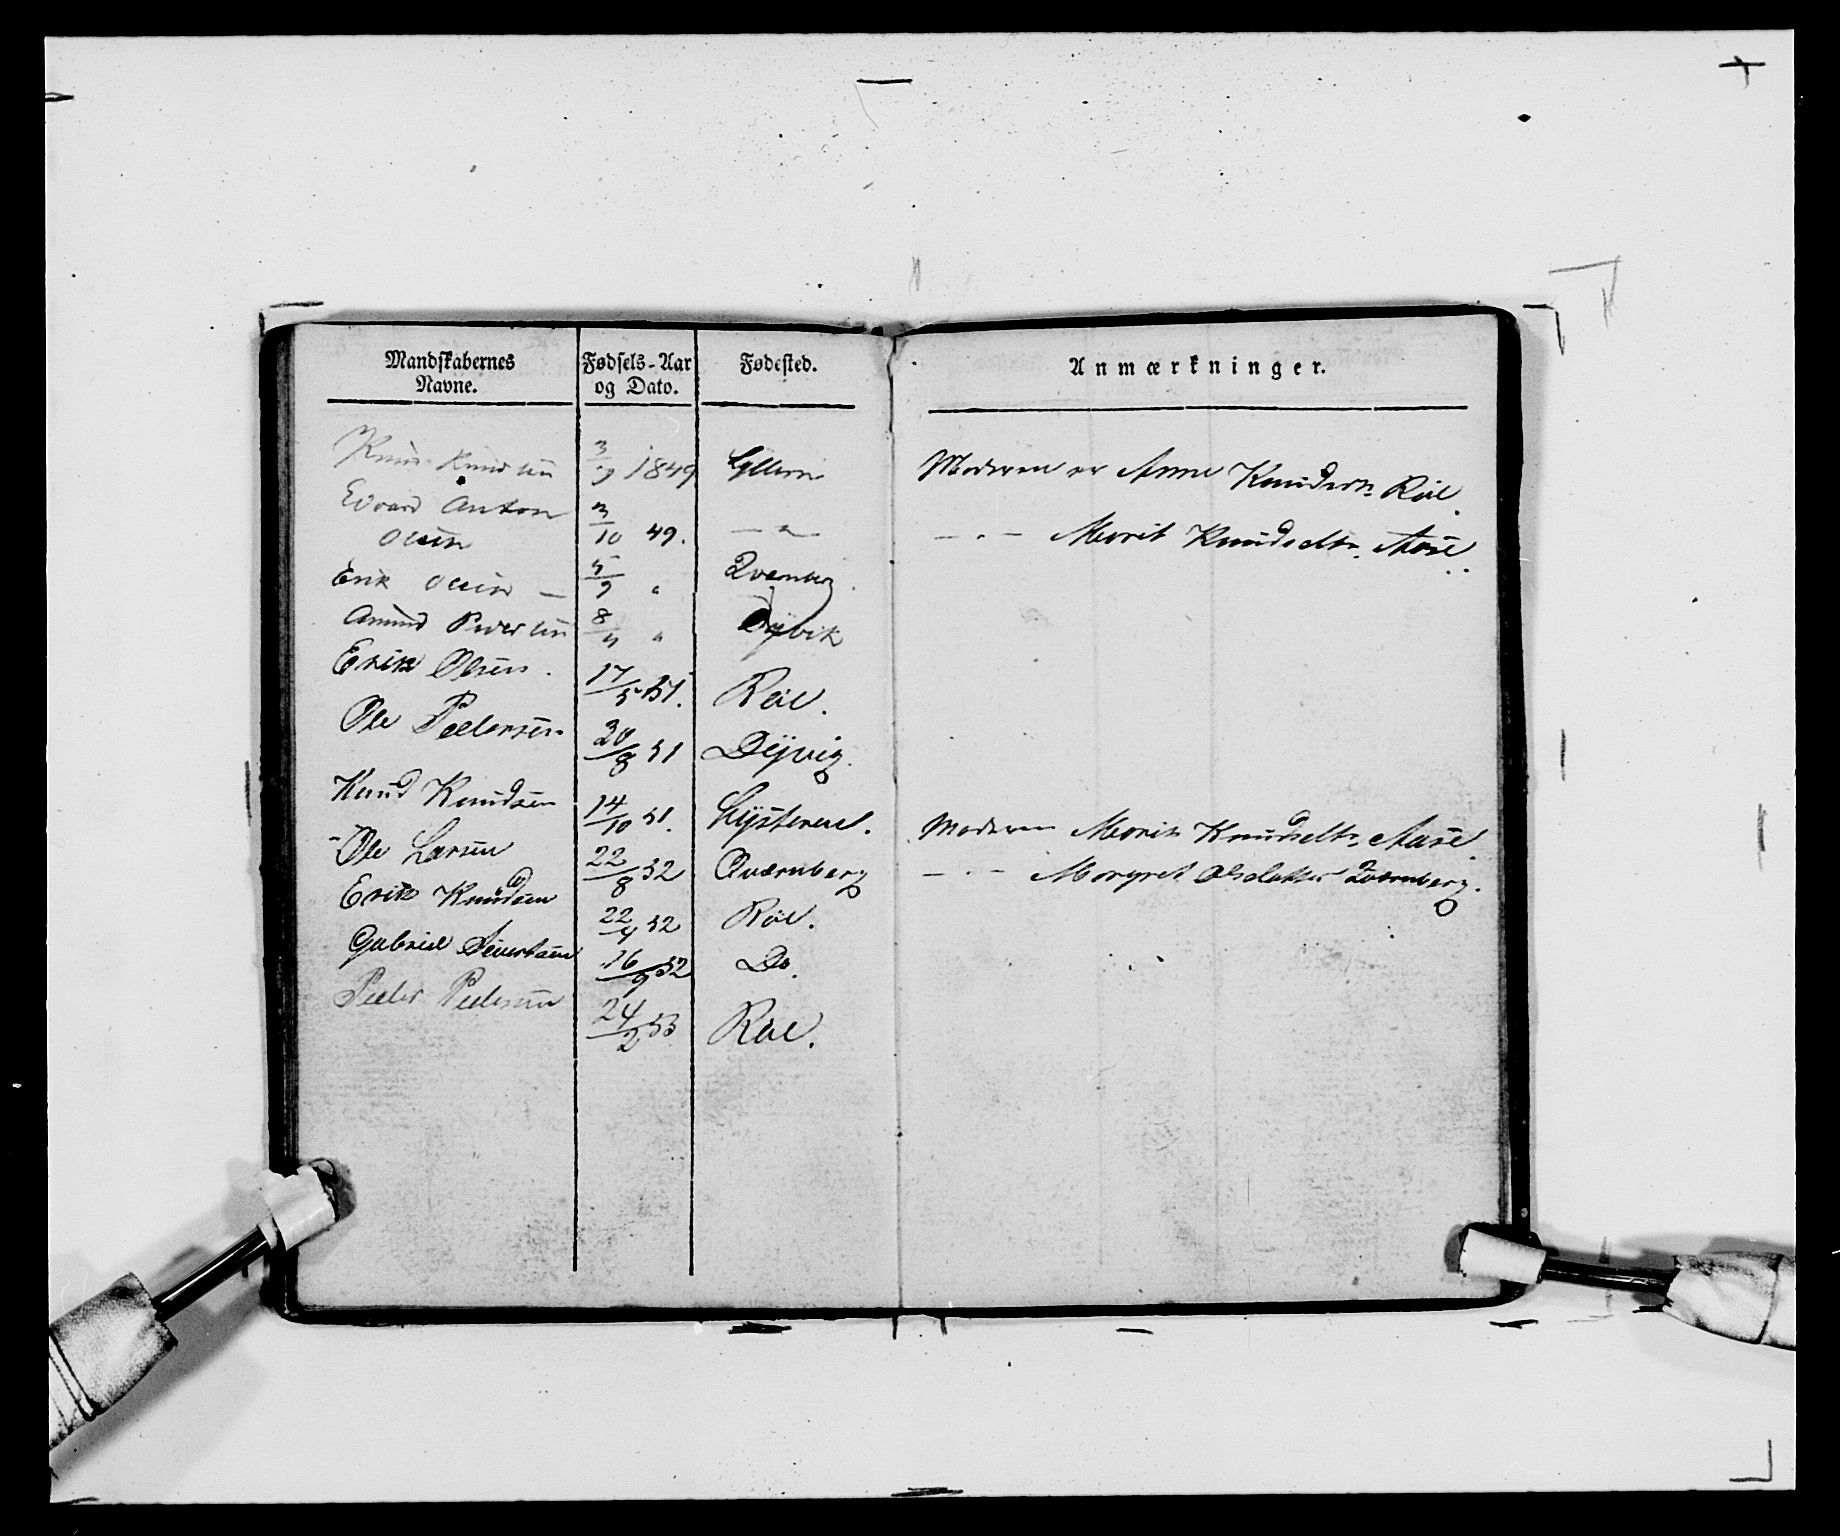 Mandskabernes Navne. Fødsels-Aar og Dato. Fødested. Anmærkninger.
Knud Knudsen 3/9 1849 Moderen er Anne Knudsdtr. Røil.
Edvard Anton
Olsen 3/10 49. — " — — " — Marit Knudsdtr. Aase.
Erik Olsen — 5/9 " Qvernberg.
Amund Pedersen 8/5 " Dÿvik
Erik Olsen. 17/5 51. Røil.
Ole Pedersen 20/8 51 Dÿvig.
Knud Knudsen 14/10 51. Moderen Marit Knudsdtr. Aase.
Ole Larsen 22/8 52 Qvernberg — " — Margret Olsdatter Qvernberg.
Erik Knudsen 22/4 52 Røil.
Gabriel Sivertsen 16/9 52 Do.
Peder Pedersen 24/2 53 Røil.